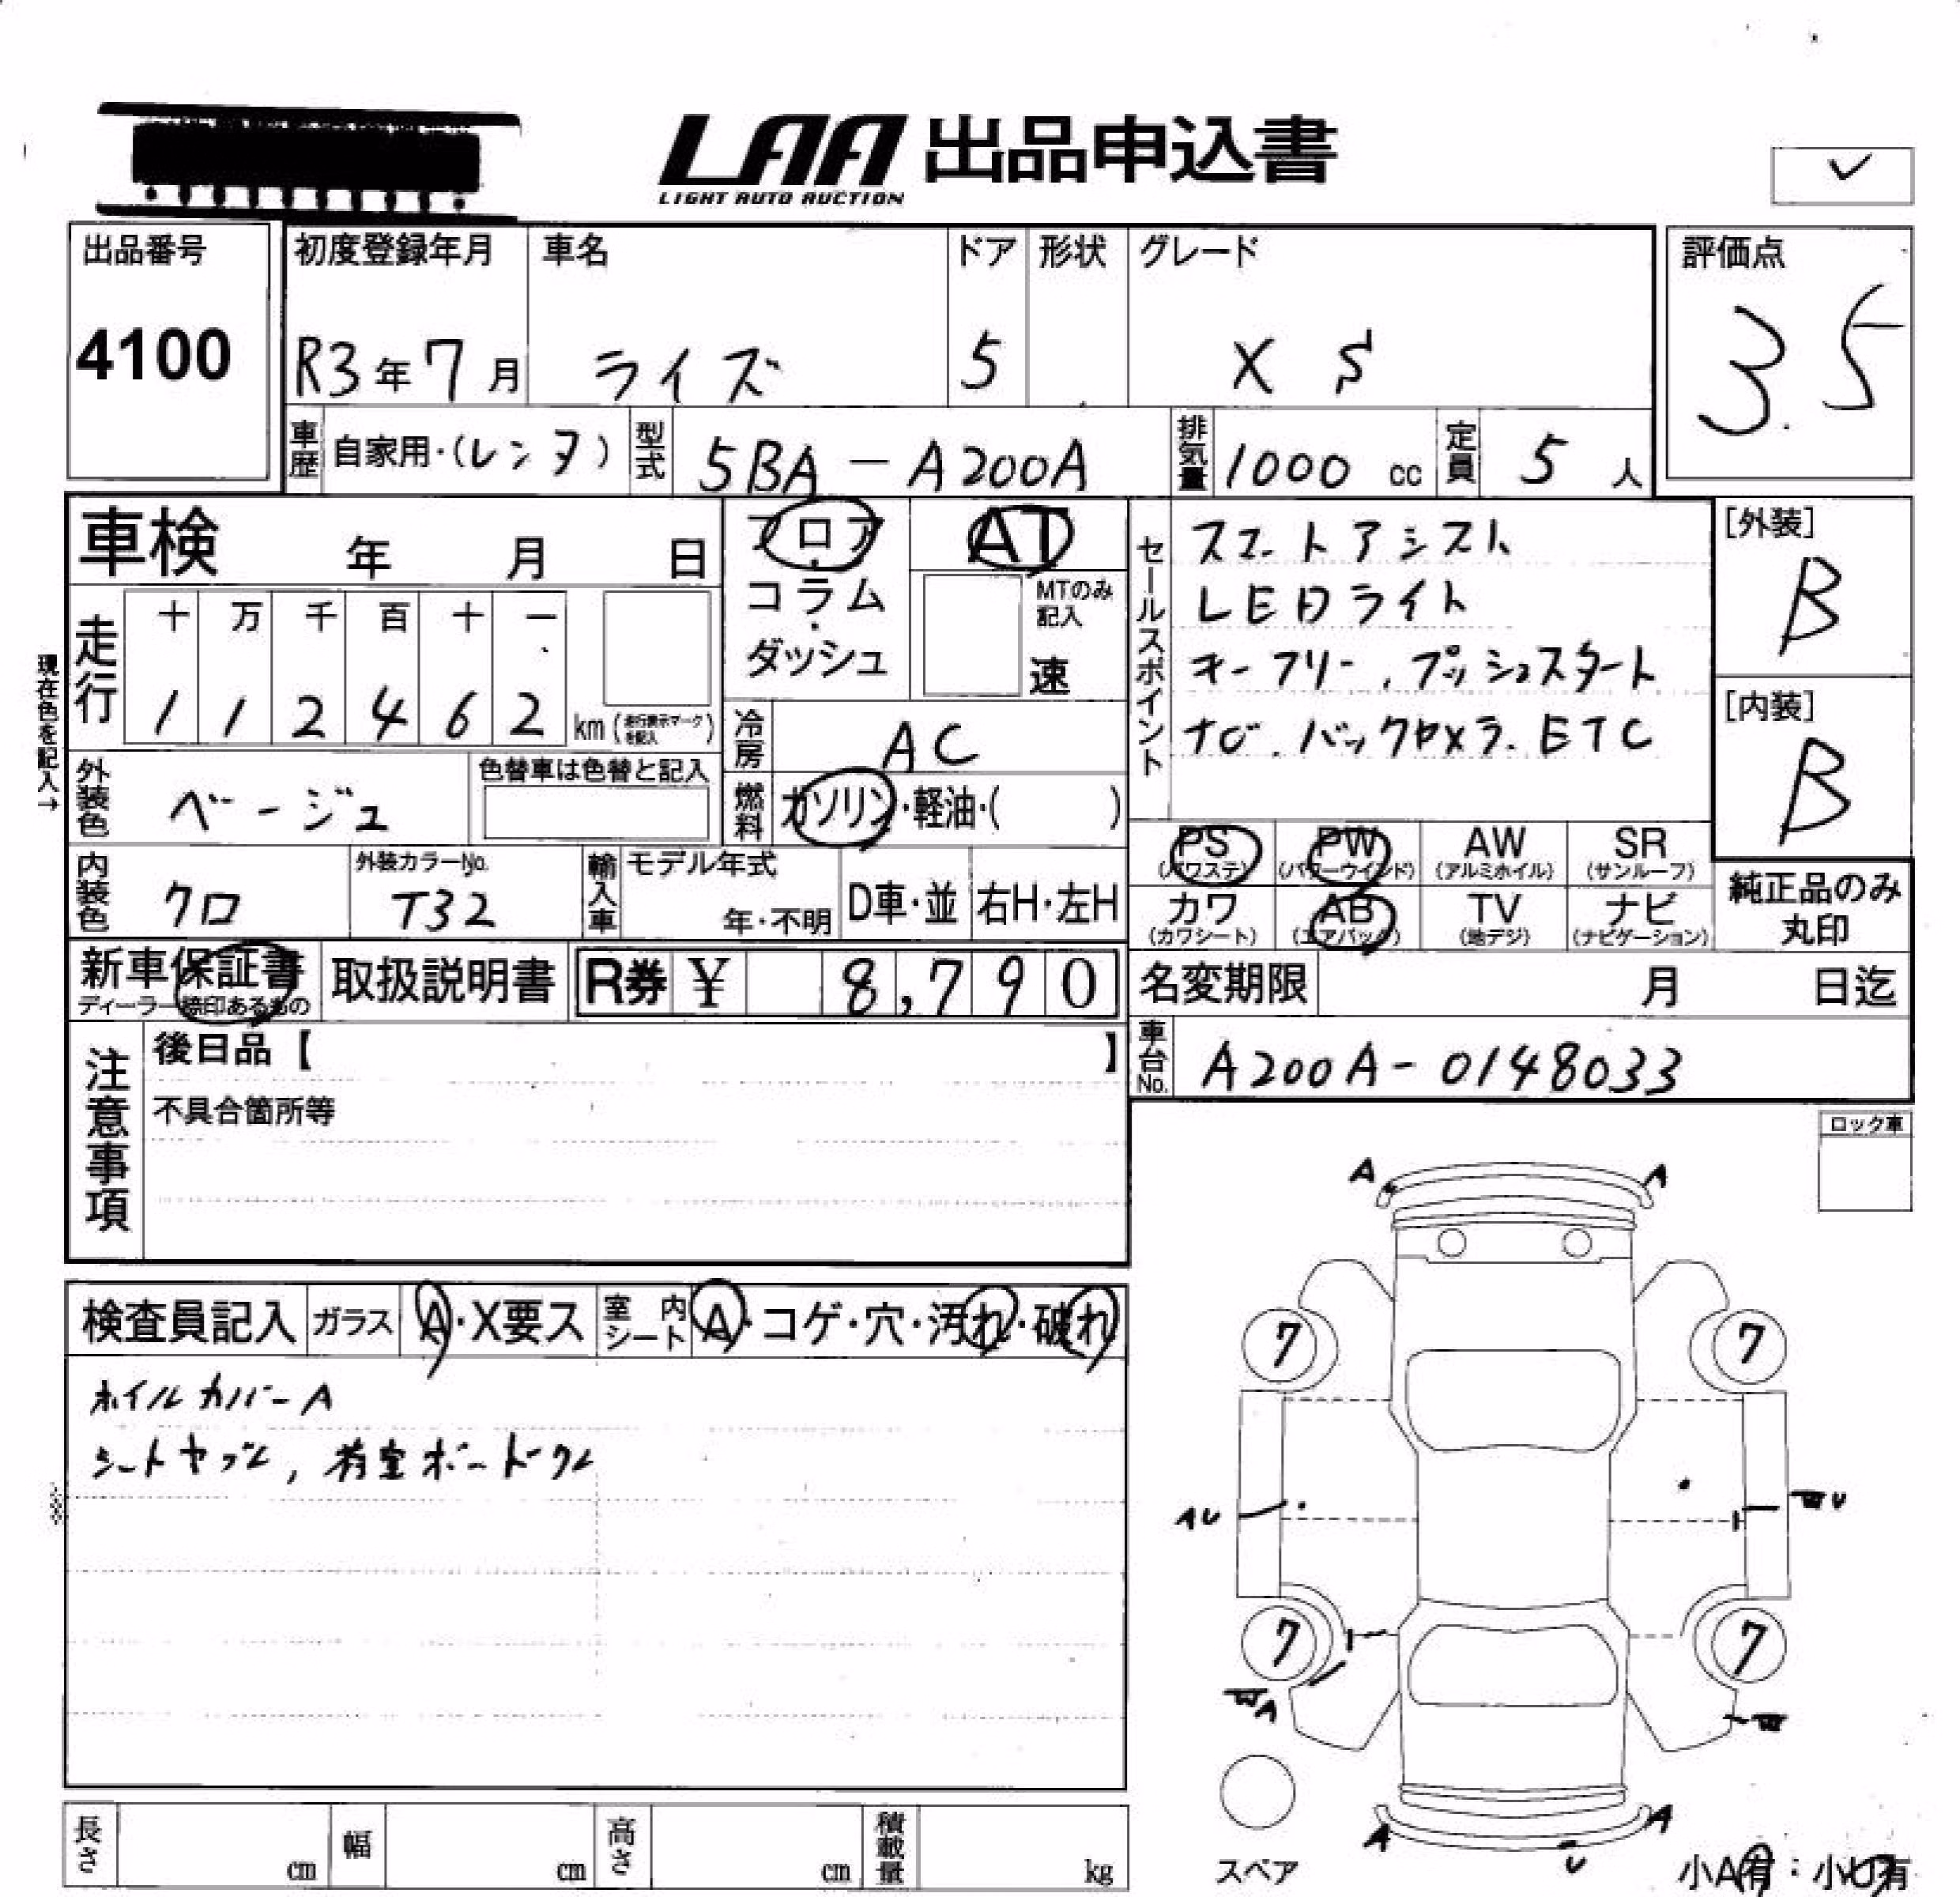 LAA 出品申込書
LIGHT AUTO AUCTION
✓
出品番号 初度登録年月 車名 ドア 形状 グレード 評価点
4100 R3年7月 ライズ 5 X S 3.5
車歴 自家用・(レンタ) 型式 5BA-A200A 排気量 1000 cc 定員 5 人
車検 年 月 日 フロア AT セールスポイント スマートアシスト [外装]
コラム MTのみ記入 LEDライト B
走行 十 万 千 百 十 一 ダッシュ 速 キーフリー、プッシュスタート
1 1 2 4 6 2 km (走行表示マークを記入) 冷房 AC ナビ、バックカメラ、ETC [内装]
現在色を記入→
外装色 ベージュ 色替車は色替と記入 燃料 ガソリン・軽油・( ) B
PS AW SR
(パワステ) PW (パワーウインド) (アルミホイル) (サンルーフ)
内装色 クロ 外装カラーNo. T32 輸入車 モデル年式 年・不明 D車・並 右H・左H
カワ AB TV ナビ 純正品のみ
(カワシート) (エアバック) (地デジ) (ナビゲーション) 丸印
新車保証書 取扱説明書 R券 ¥ 8,790 名変期限 月 日迄
ディーラー捺印あるもの
注意事項 後日品【 】 車台No. A200A-0148033
不具合箇所等
ロック車
検査員記入 ガラス A・X要ス 室内シート A・コゲ・穴・汚れ・破れ
ホイルカバーA
シートヤブレ、荷室ボードワレ
A A
7 7
AU WU
7 7
WA W
A A
U
スペア
小A有:小U有
長さ cm 幅 cm 高さ cm 積載量 kg